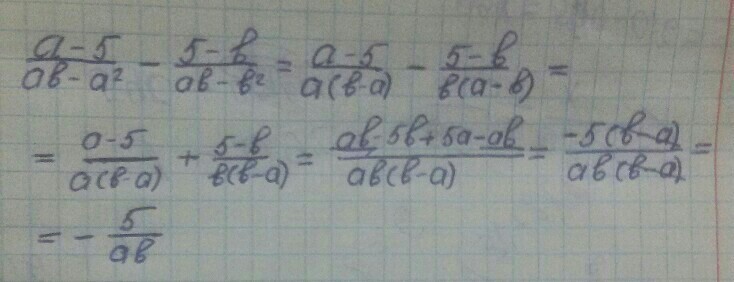 (a-5)/(ab-a²) - (5-b)/(ab-b²) = (a-5)/(a(b-a)) - (5-b)/(b(a-b)) =
= (a-5)/(a(b-a)) + (5-b)/(b(b-a)) = (ab-5b+5a-ab)/(ab(b-a)) = (-5(b-a))/(ab(b-a)) =
= - 5/(ab)